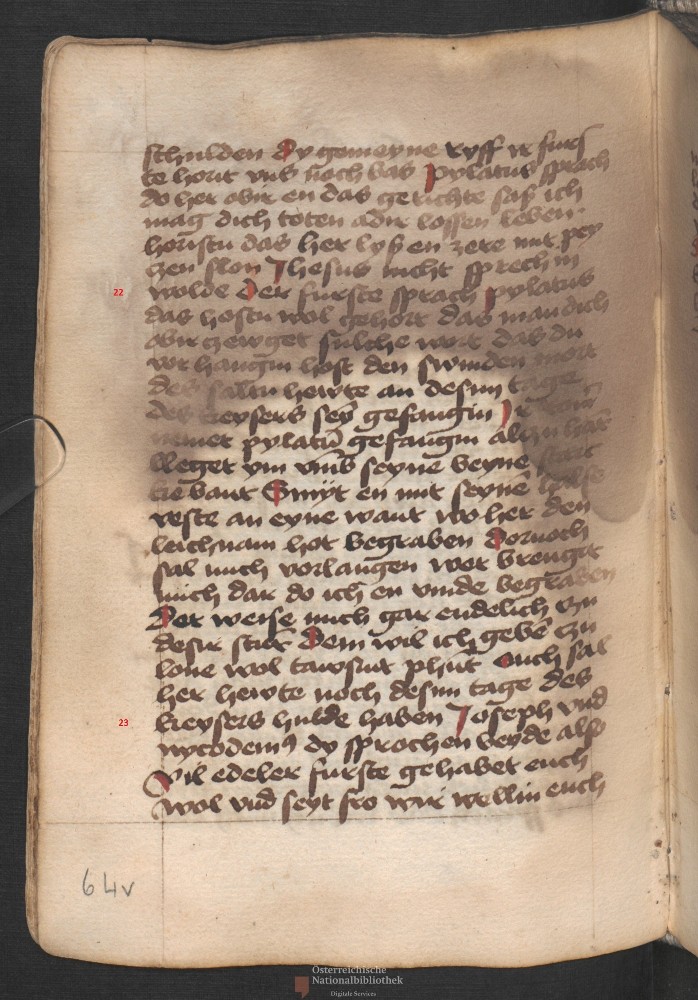 schulden Dy gemeyne ryff ir furs
te horit vns noch bas Pylatus sprach
do her obir en das gerichte sas ich
mag dich toten adir lossen leben
horistu das her lys en zere mit pey
czen slon Jhesus nicht sprechin
22
wolde Der furste sprach Pylatus
das hostu wol gehort das man dich
obir czewget sulche wort das du
vor hangin host den swinden mort
des saltu hewte an desim tage
des keysers sey gefangin Ir
nemet pylatū gefangin
leget ym vmb seyne beyne
ke bant Smyt en mit seynē
veste an eyne want wo her den
leichnam hot begraben Dornoch
sal mich vorlangen wer brenget
mich dar do ich en vinde begraben
Der weise mich gar endelich czu
desir stūt Dem wil ich gebē czu
lone wol tawsint phūt Ouch sal
her hewte noch desim tage des
23
keysers hulde haben Joseph vnd
nycodemꝰ dy sprochen beyde also
Vil edeler furste gehabet euch
wol vnd seyt fro wir wellin euch
64v
Österreichische
Nationalbibliothek
Digitale Services